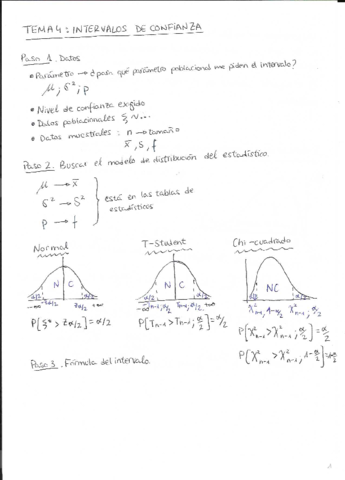 TEMA 4: INTERVALOS DE CONFIANZA
Paso 1. Datos
• Parámetro → ¿para qué parámetro poblacional me piden el intervalo?
μ; σ²; p
• Nivel de confianza exigido
• Datos poblacionales
• Datos muestrales: n → tamaño
x̄, s, f
Paso 2. Buscar el modelo de distribución del estadístico.
μ → x̄
σ² → s²
p → f
está en las tablas de estadísticos
Normal T-Student Chi-cuadrado
N C N C NC
α/2 α/2 α/2 α/2 α/2 α/2
-∞ -zα/2 zα/2 +∞ -∞ Tn-1, α/2 +∞ χ²n-1, 1-α/2 χ²n-1, α/2
P[ > zα/2] = α/2 P[Tn-1 > Tn-1; α/2] = α/2 P[χ²n-1 > χ²n-1; α/2] = α/2
P[χ²n-1 > χ²n-1, 1-α/2] =
Paso 3. Fórmula del intervalo.